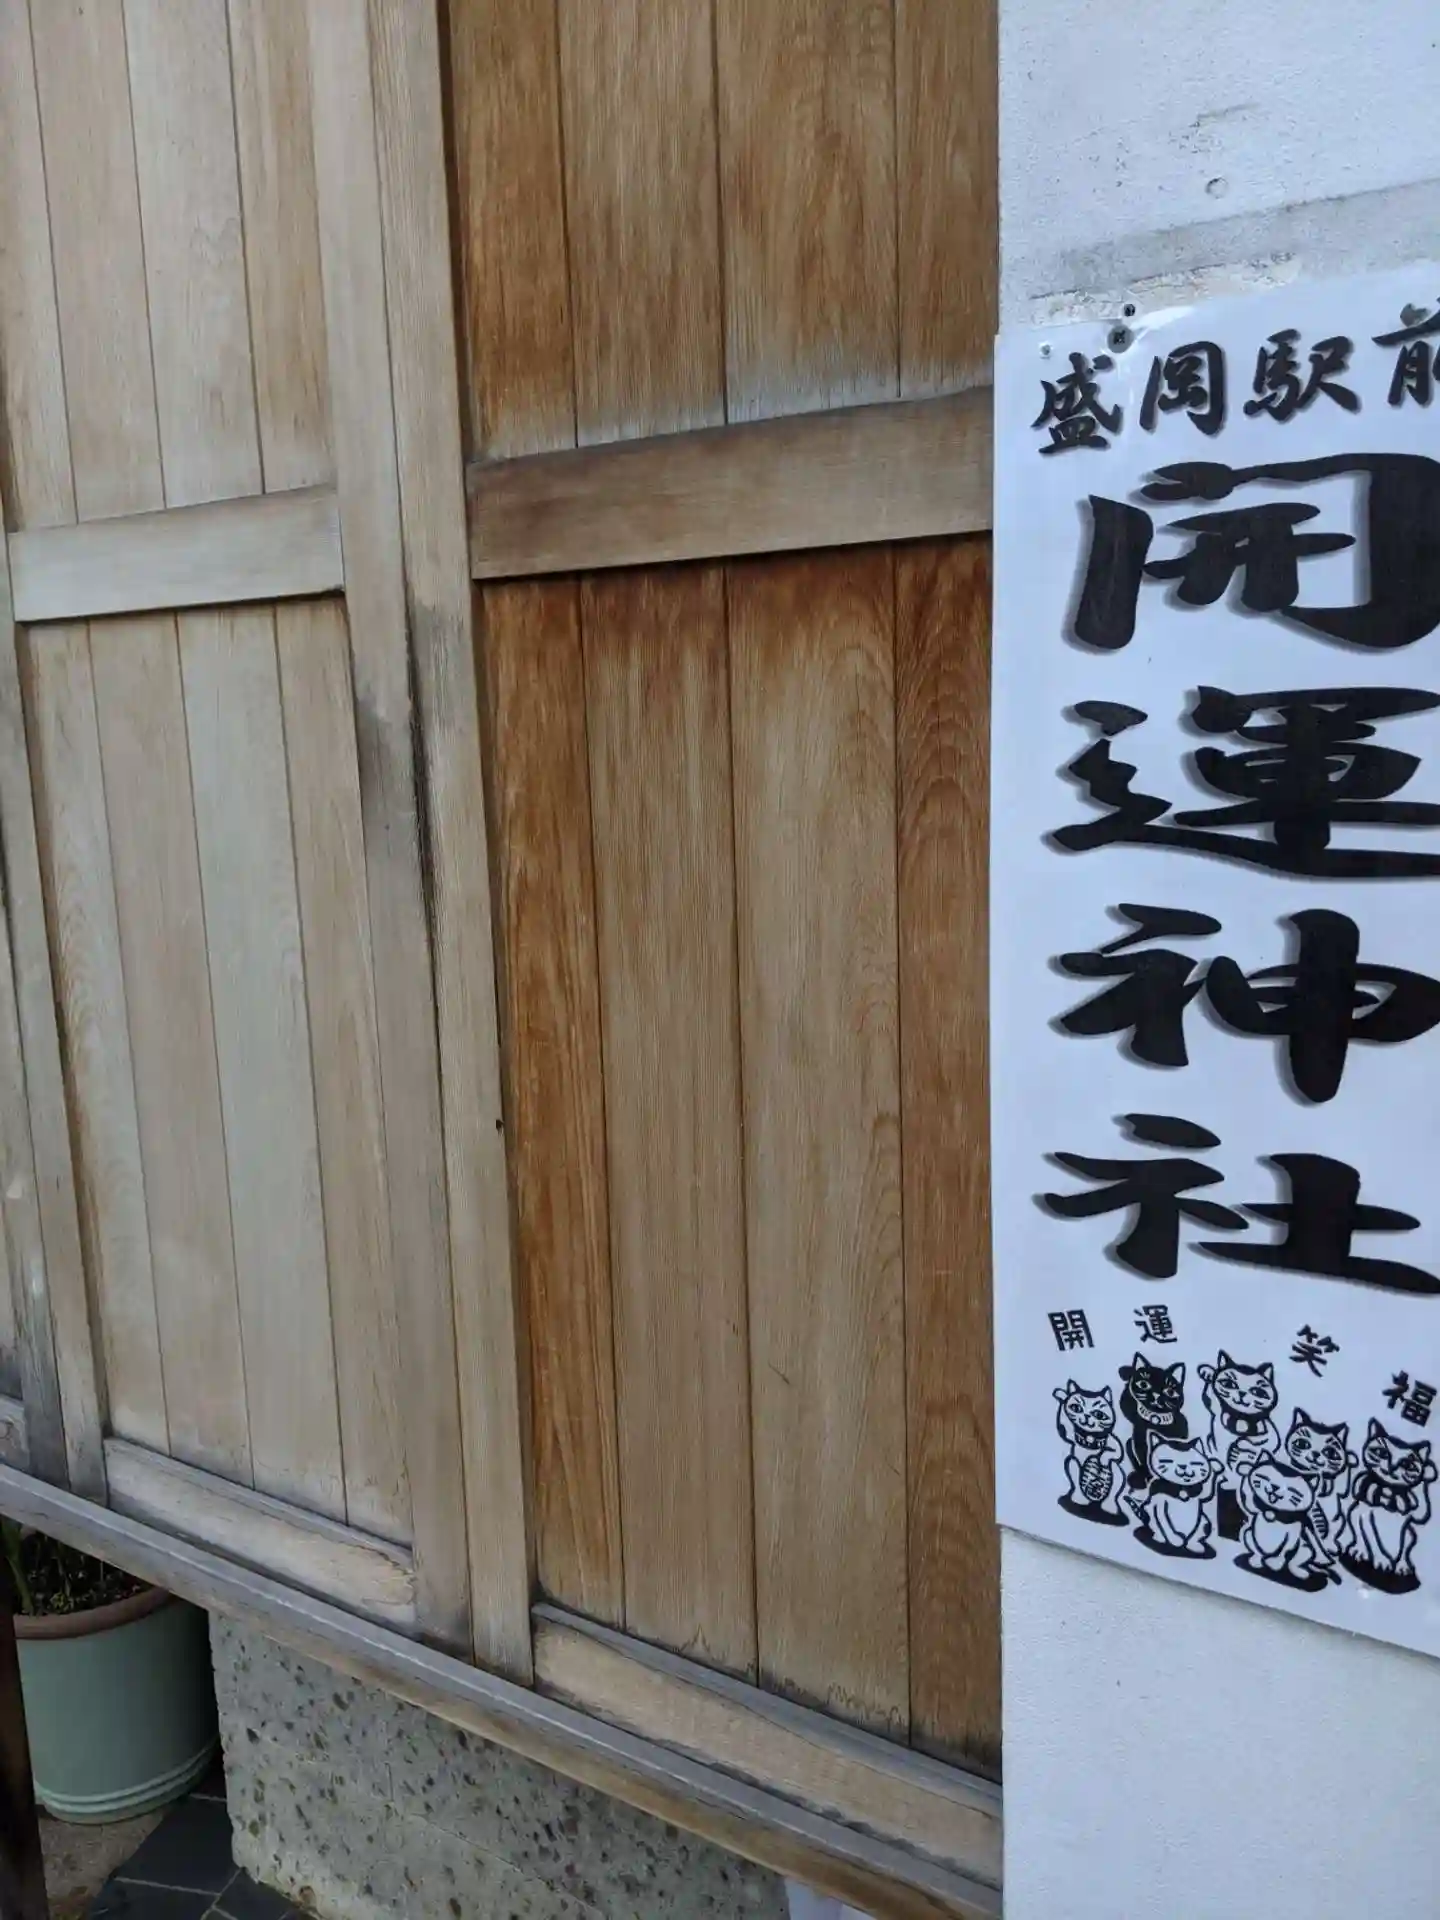 盛岡駅前
開運神社
開運 笑福